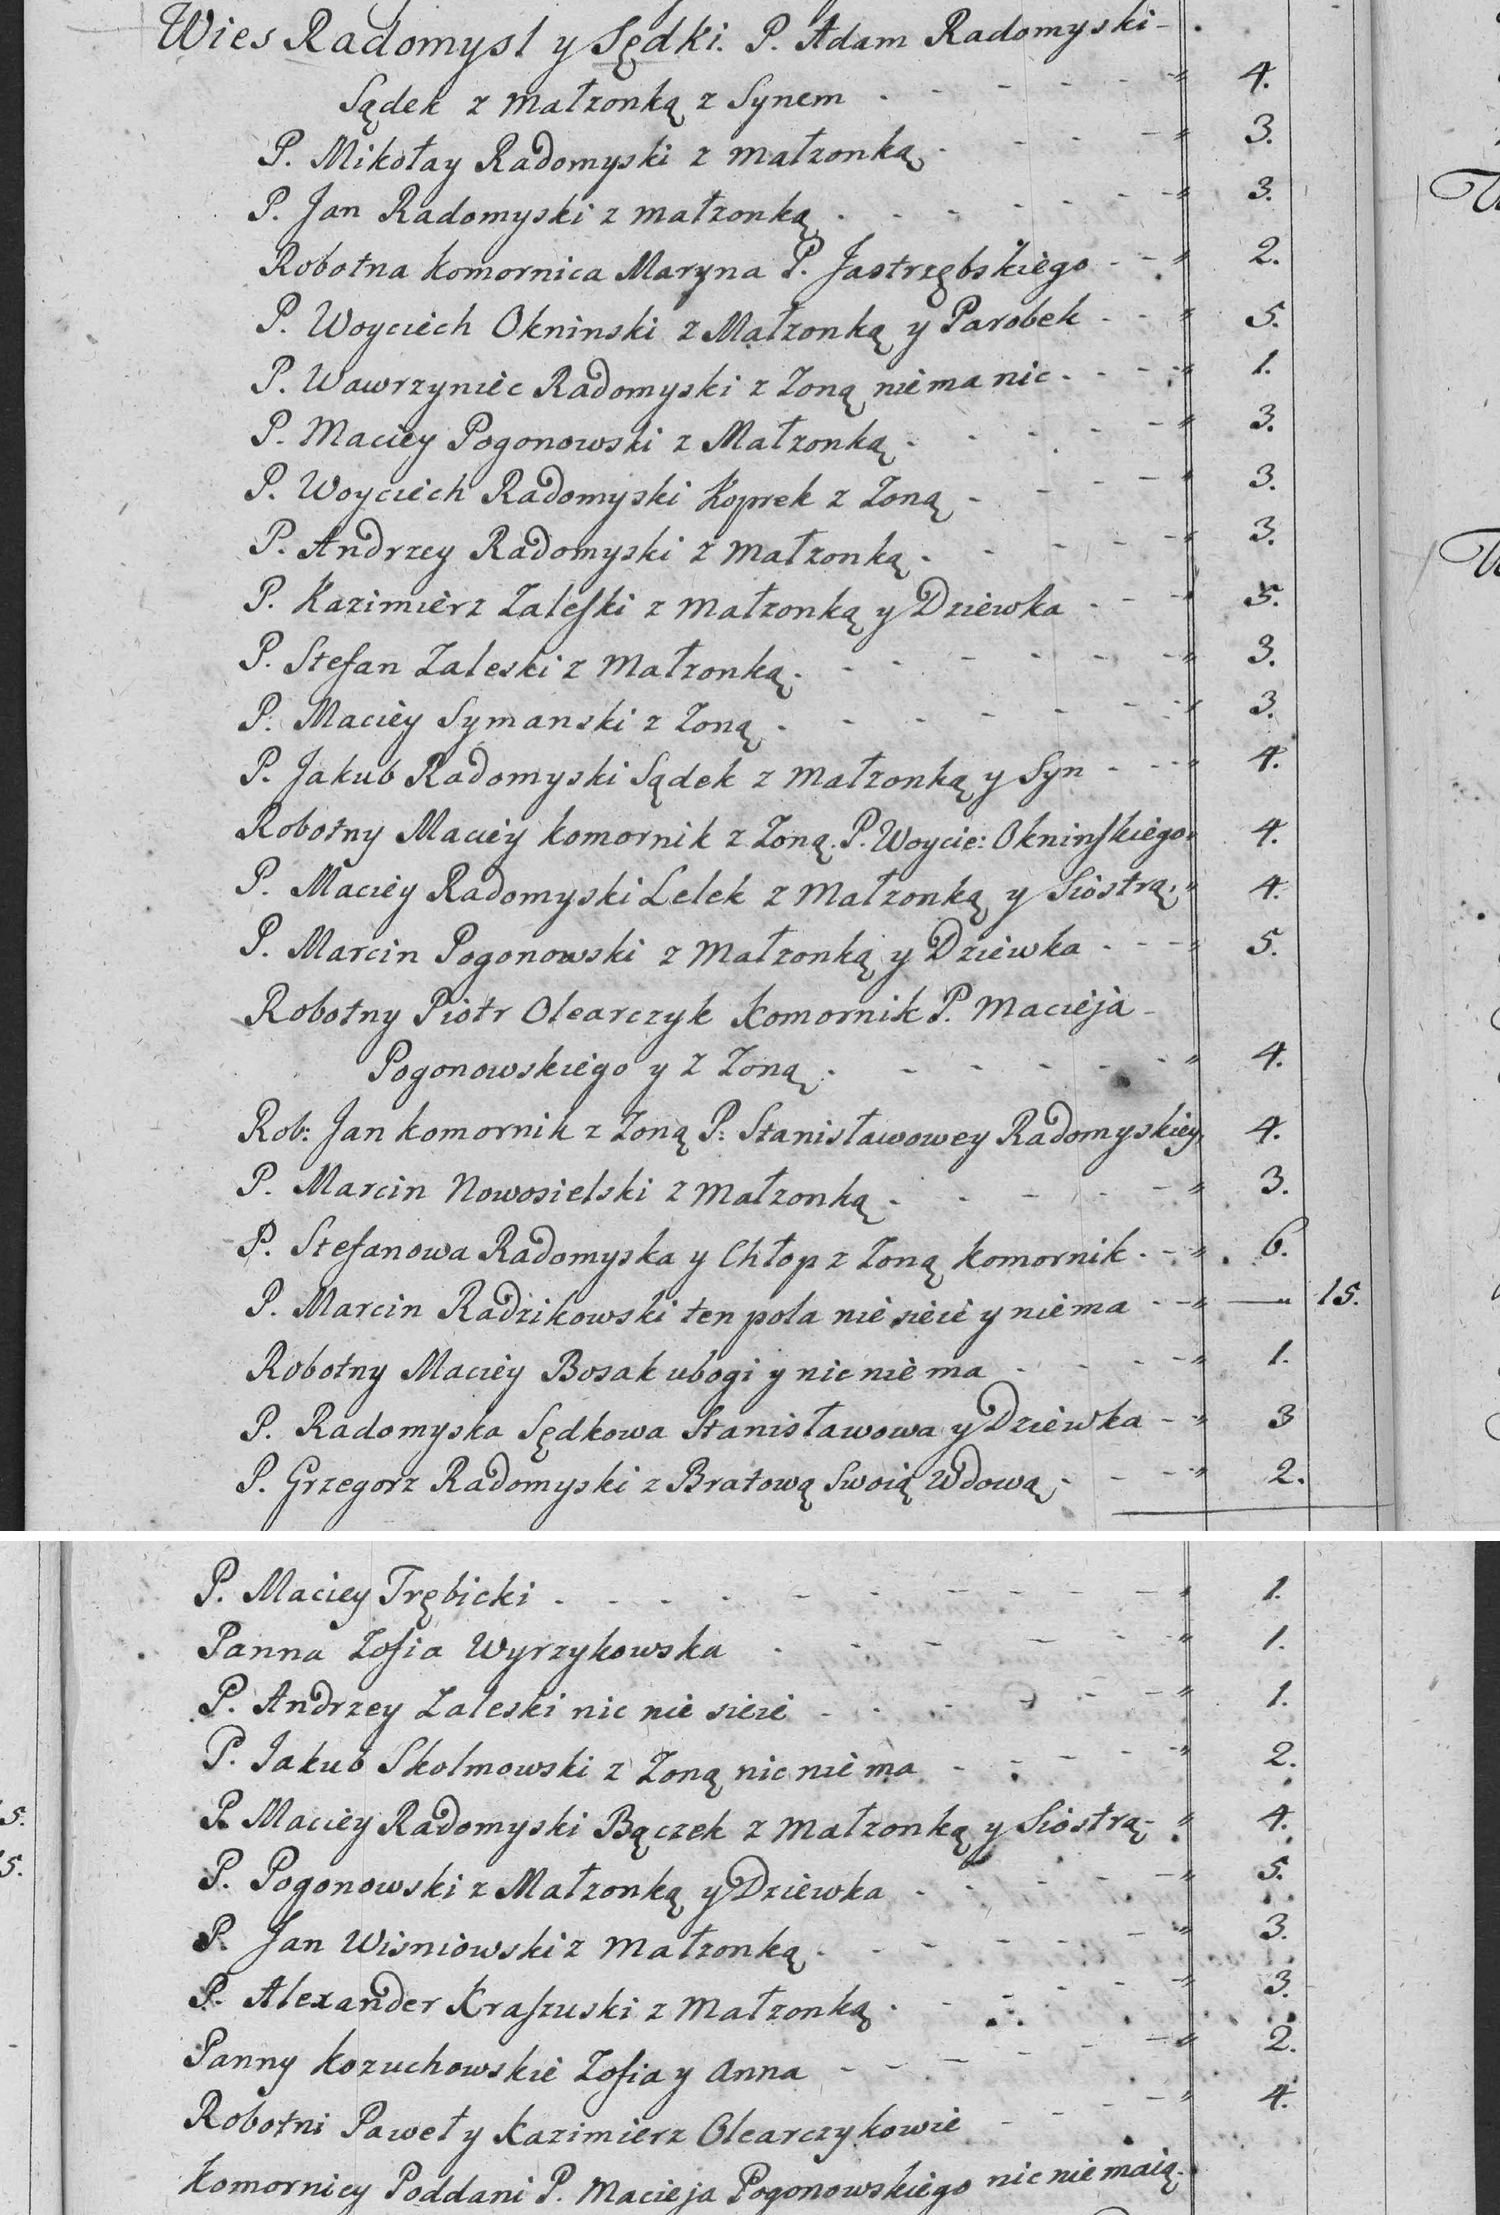 Wies Radomysl y Sędki. P. Adam Radomyski - .
Sądek z małzonką z Synem - - - - - " 4.
P. Mikołay Radomyski z małzonką - - - - " 3.
P. Jan Radomyski z małzonką - - - - - - " 3.
Robotna komornica Maryna P. Jastrzębskiego - - " 2.
P. Woyciech Okninski z Małzonką y Parobek - - " 5.
P. Wawrzyniec Radomyski z Zoną niema nic - - - " 1.
P. Maciey Pogonowski z Małzonką - - - - - " 3.
P. Woyciech Radomyski Koprek z Zoną - - - - " 3.
P. Andrzey Radomyski z małzonką - - - - - " 3.
P. Kazimierz Zaleski z małzonką y Dziewka - - - " 5.
P. Stefan Zaleski z Małzonką - - - - - - " 3.
P. Maciey Symanski z Zoną - - - - - - - " 3.
P. Jakub Radomyski Sądek z małzonką y Syn - - - " 4.
Robotny Maciey komornik z Zoną P. Woycie: Okninskiego " 4.
P. Maciey Radomyski Lelek z Małzonką y Siostrą " 4.
P. Marcin Pogonowski z Małzonką y Dziewka - - - " 5.
Robotny Piotr Olearczyk komornik P. Macieja -
Pogonowskiego y z Zoną - - - - - - " 4.
Rob: Jan komornik z Zoną P: Stanisławowey Radomyskiey 4.
P. Marcin Nowosielski z Małzonką - - - - - " 3.
P. Stefanowa Radomyska y Chłop z Zoną komornik - - " 6.
P. Marcin Radzikowski ten pola nie sieie y niema - - " — 15.
Robotny Maciey Bosak ubogi y nic nie ma - - - - " 1.
P. Radomyska Sędkowa Stanisławowa y Dziewka - - " 3
P. Grzegorz Radomyski z Bratową Swoią Wdową - - - - " 2.
P. Maciey Trębicki - - - - - - - - - " 1.
Panna Zofia Wyrzykowska - - - - - - " 1.
P. Andrzey Zaleski nic nie sieie - - - - - - " 1.
P. Jakub Skolmowski z Zoną nic nie ma - - - - - " 2.
P. Maciey Radomyski Bączek z małzonką y Siostrą - " 4.
P. Pogonowski z Małzonką y Dziewka - - - - - " 5.
P. Jan Wisniowski z Małzonką - - - - - - " 3.
P. Alexander Kraszuski z Małzonką - - - - - " 3.
Panny Kozuchowskie Zofia y Anna - - - - - - " 2.
Robotni Paweł y Kazimierz Olearczykowie - - - - " 4.
Komornicy Poddani P. Macieja Pogonowskiego nic nie maią.